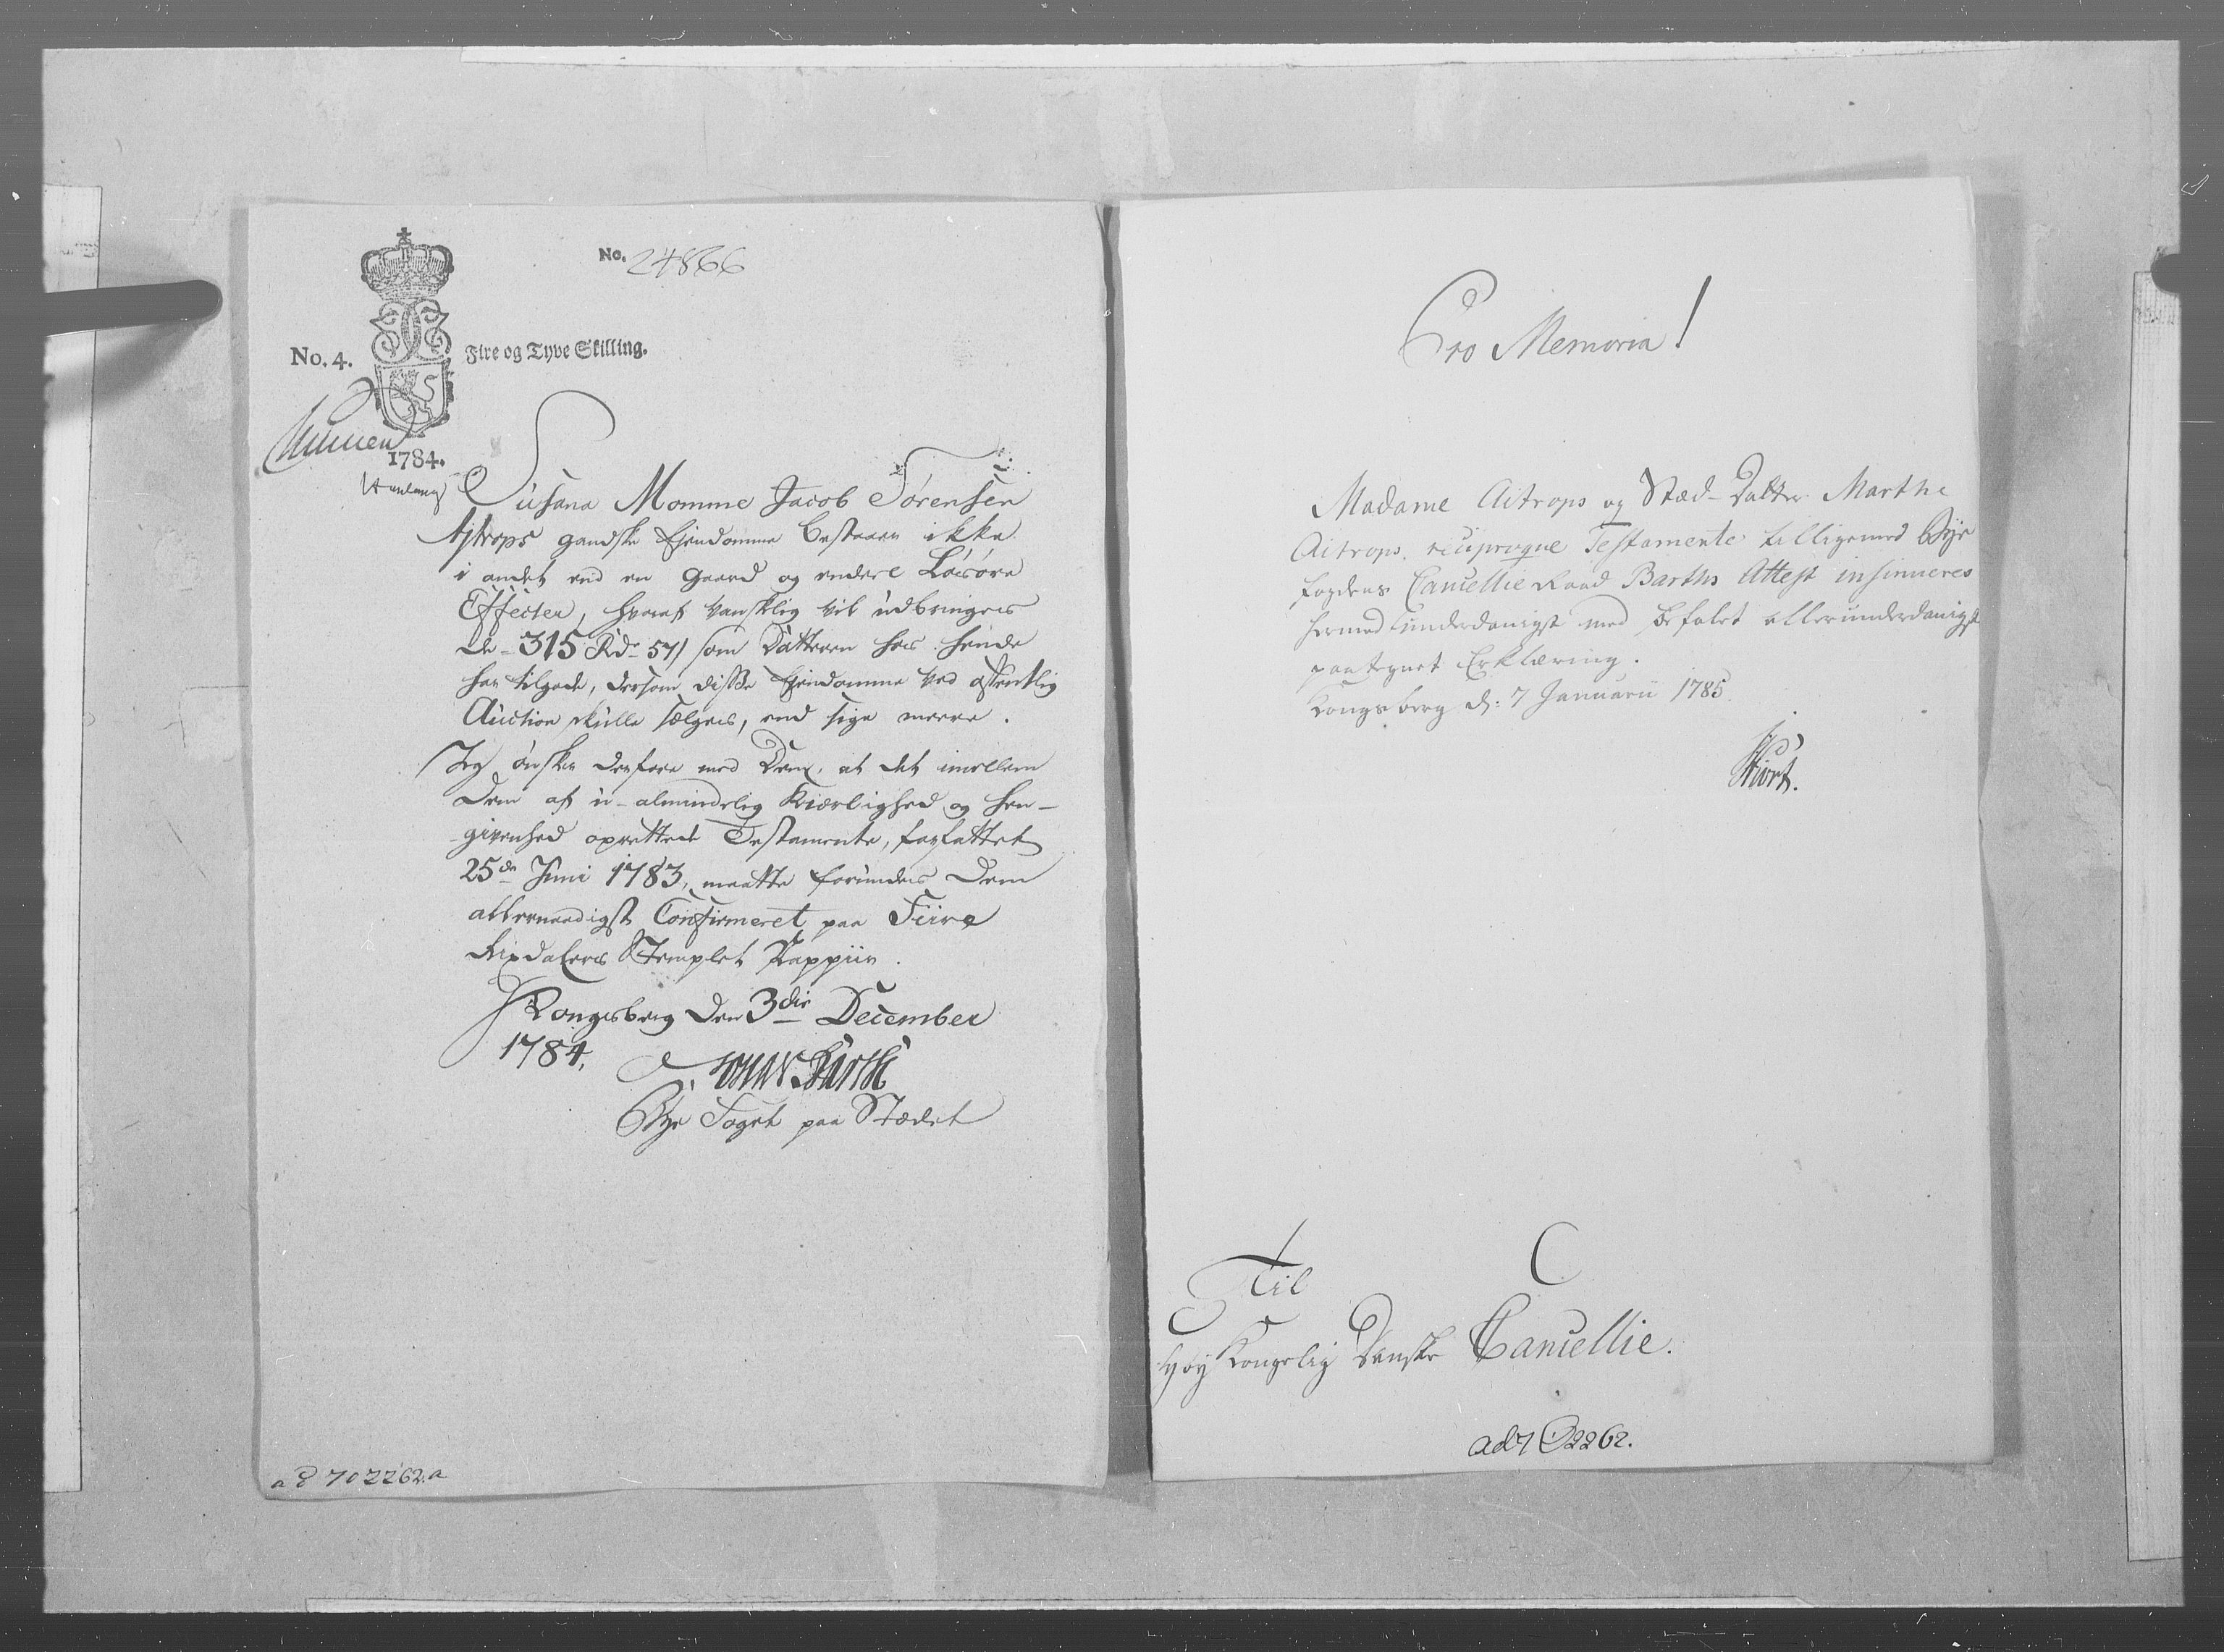 No. 24866
No. 4.
Fire og Tyve Skilling.
1784.
Susana Momme Jacob Sørensen
Ajtrops gandske Ejendomme bestaaer ikke
i andet end en Gaard og endeel Løsøre
Effecter, hvoraf vanskelig vil udbringes
de 315 Rdr 57 s som Datteren hos hende
har tilgode, dersom disse Ejendomme ved offentlig
Auction skulle sælges, end sige meere.
Jeg ønsker derfore med Dem, at det imellem
Dem af u-almindelig Kiærlighed og Hen-
givenhed oprettede Testamente, forfattet
25de Juni 1783, maatte forundes Dem
allernaadigst Confirmeret paa Fiire
Rixdalers Stemplet Pappiir.
Kongsberg den 3die December
1784.
Barth
Bye Foget paa Stædet
ad 702262.a
Pro Memoria!
Madame Aitrops og Stæd-Datter Marthe
Aitrops reciproque Testamente tilligemed Bye
fogdens Cancellie Raad Barths Attest insinueres
hermed underdanigst med befalet allerunderdanigst
paategnet Erklæring.
Kongsberg d: 7 Januarii 1785.
Hiort.
Til
Det
Høy Kongelig Danske Cancellie.
ad 702262.